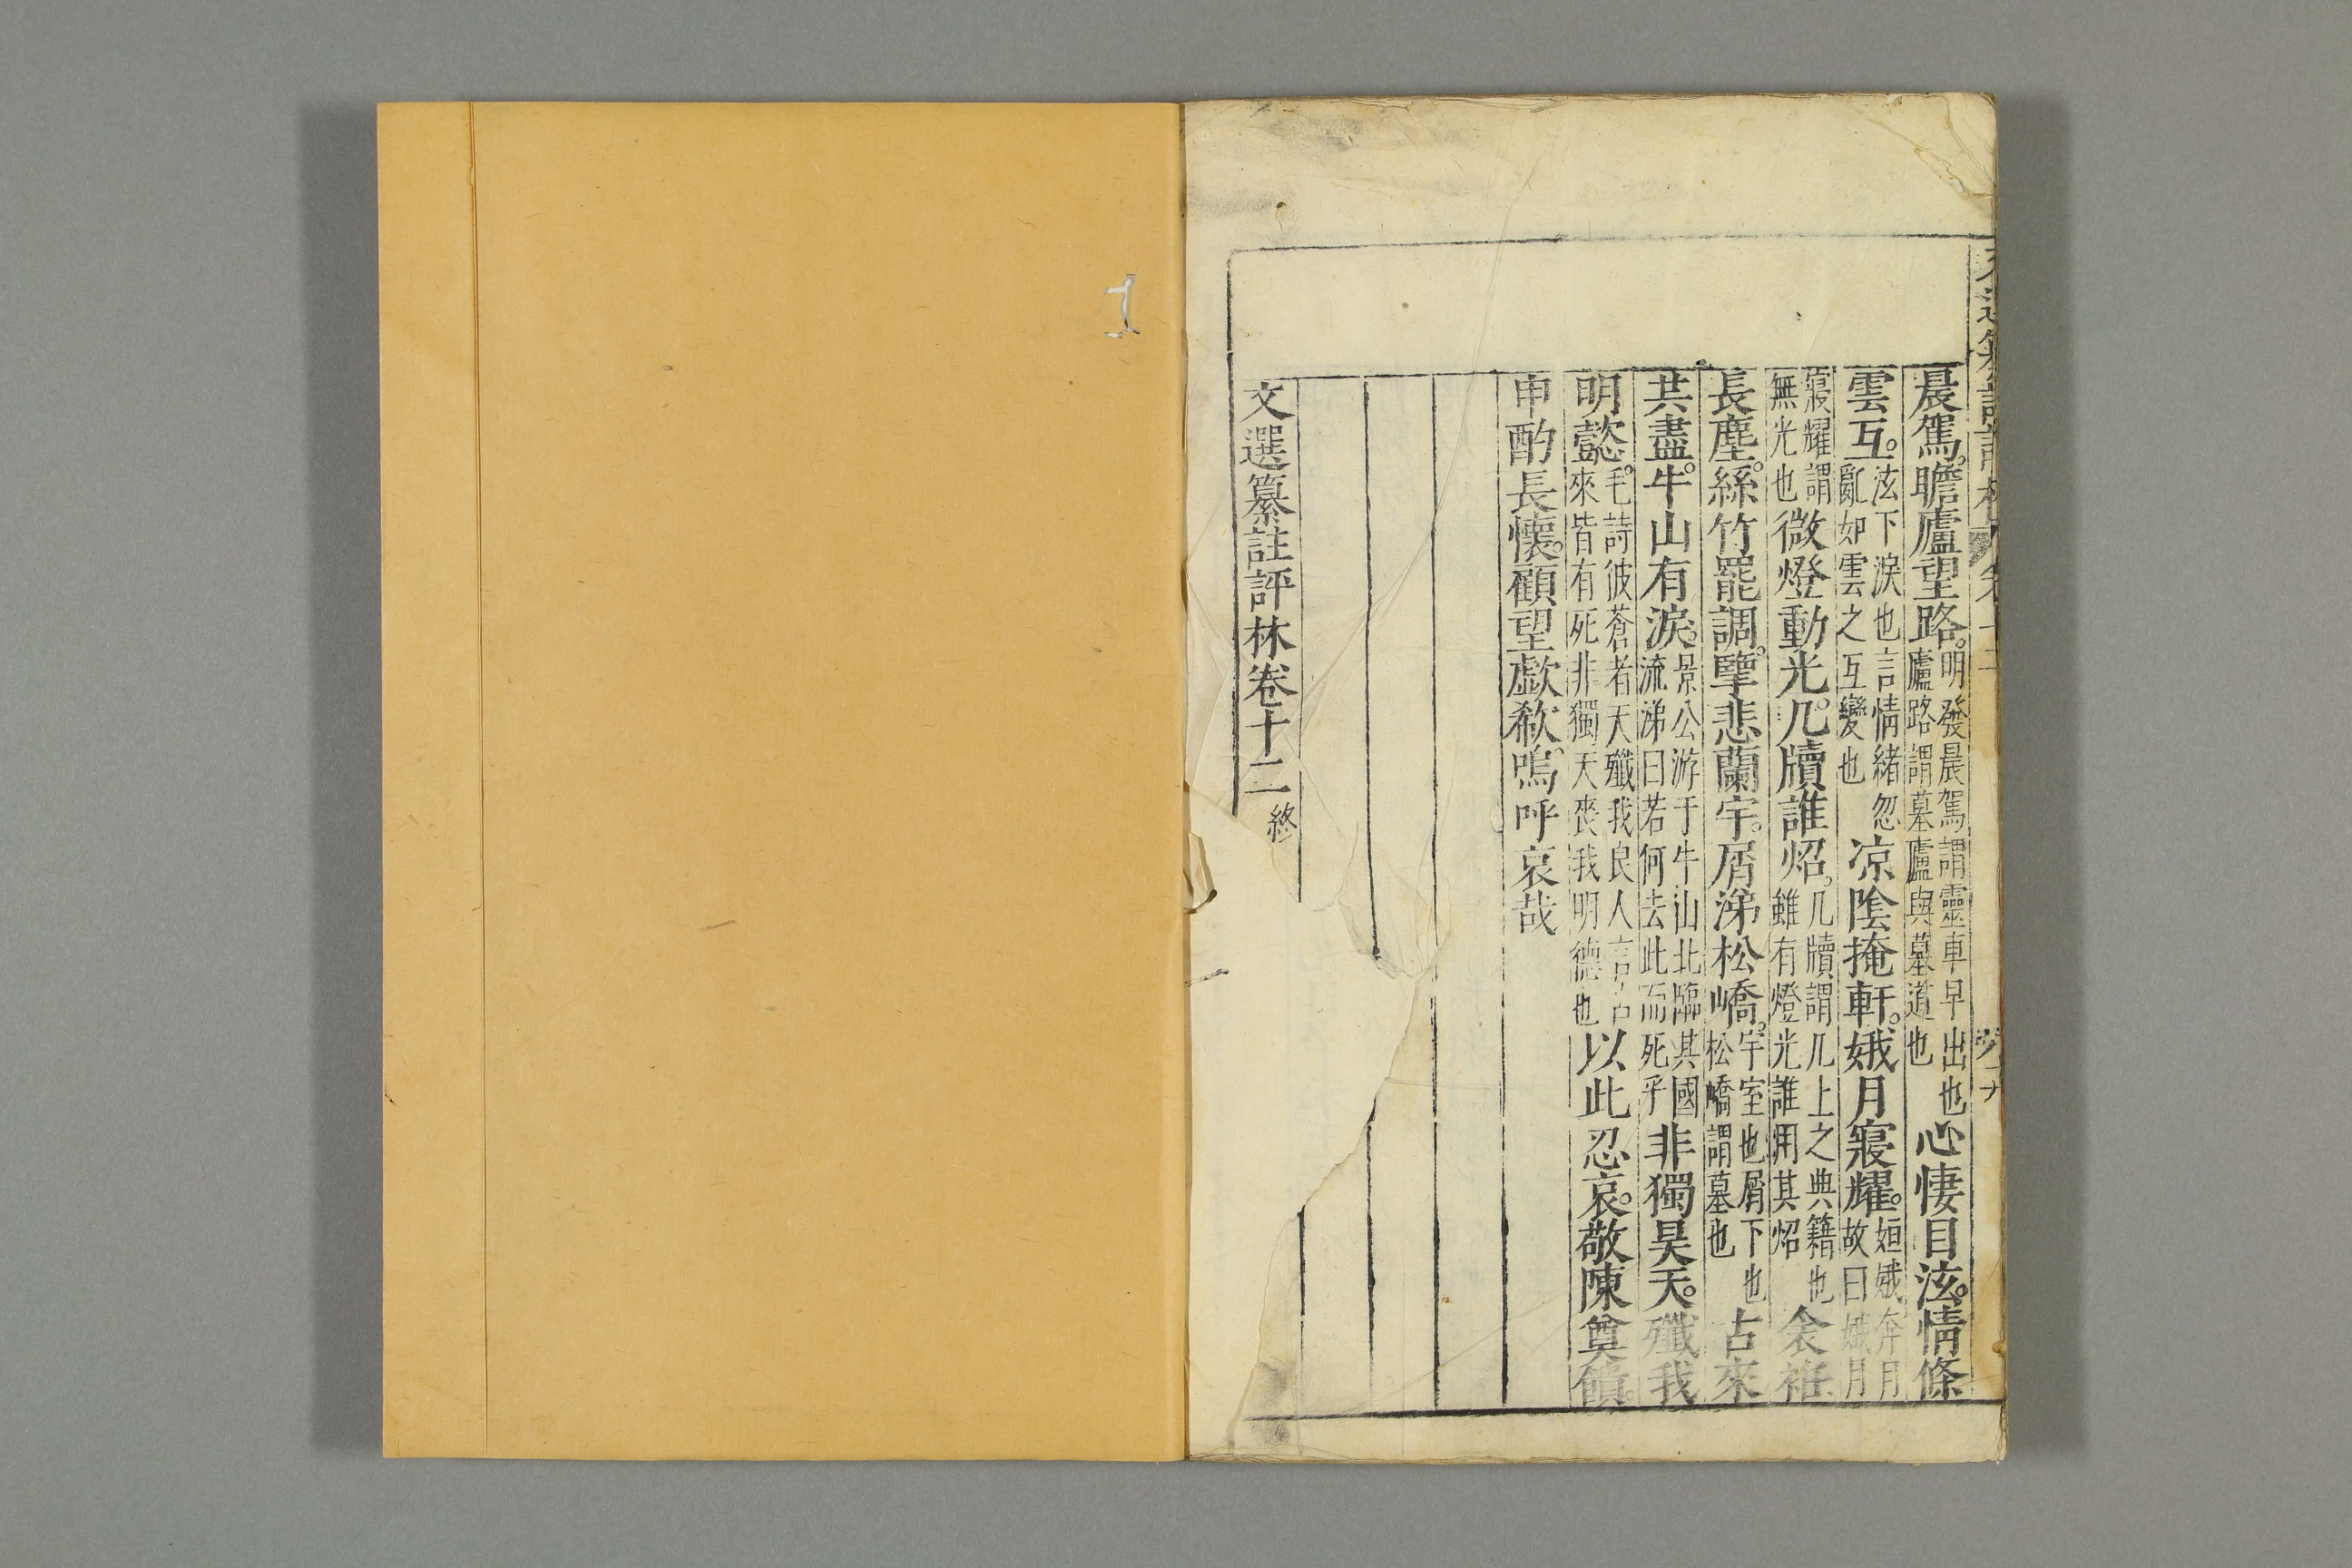 晨駕。瞻廬望路。明發晨駕謂靈車早出也廬路謂墓廬與墓道也心悽目泫。情條
雲互。泫下淚也言情緒忽亂如雲之互變也凉陰掩軒。娥月寢耀。姮娥奔月故曰娥月
寢耀謂無光也微燈動光。几牘誰炤。几牘謂几上之典籍也雖有燈光誰用其炤衾袵
長塵。絲竹罷調。擥悲蘭宇。屑涕松嶠。宇室也屑下也松嶠謂墓也古來
共盡。牛山有淚。景公游于牛山北臨其國流涕曰若何去此而死乎非獨昊天。殲我
明懿。毛詩彼蒼者天殲我良人言古來皆有死非獨天喪我明德也以此忍哀。敬陳奠饋。
申酌長懷。顧望歔欷。嗚呼哀哉
文選纂註評林卷十二終
1